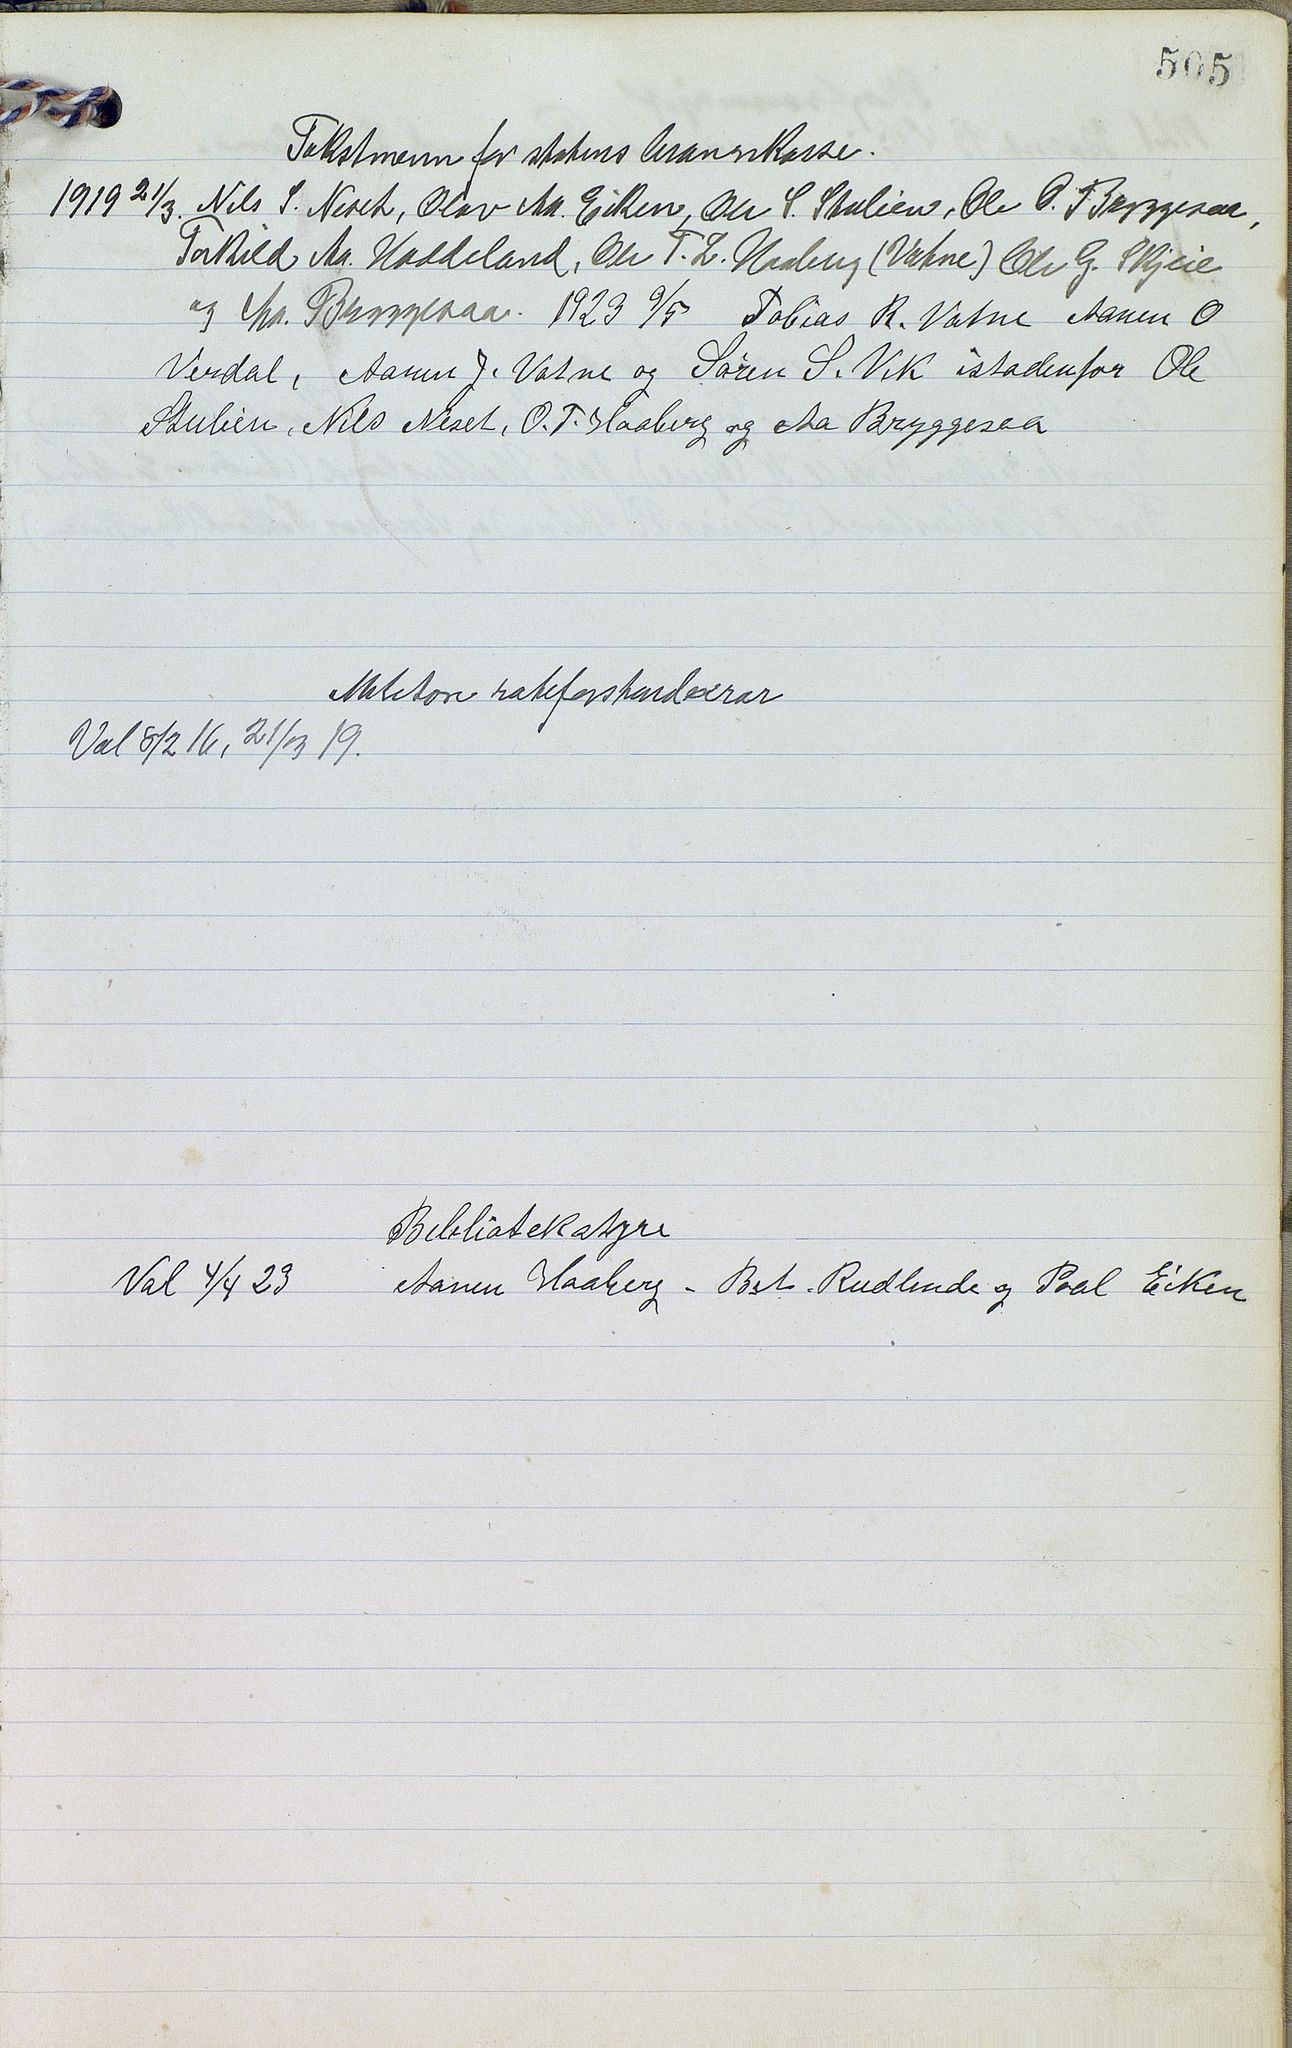 505
Takstmenn for statens brannkasse.
1919 21/3. Nils S. Neset, Olav Aa. Eiken, Ole S. Stulien, Ole O. Bryggesaa,
Torkild Aa. Haddeland, Ole T. L. Haaberg (Vatne) Ole G. Skjeie
og Aa. Bryggesaa. 1923 9/5 Tobias R. Vatne Aanen O
Verdal, Aanen J. Vatne og Søren S. Vik istadenfor Ole
Stulien, Nils Neset, O. T. Haaberg og Aa Bryggesaa
roteforstandarar
Val 8/2 16, 21/3 19.
Bibliotekstyre
Val 4/4 23 Aanen Haaberg - Bst. Rudlende og Paal Eiken